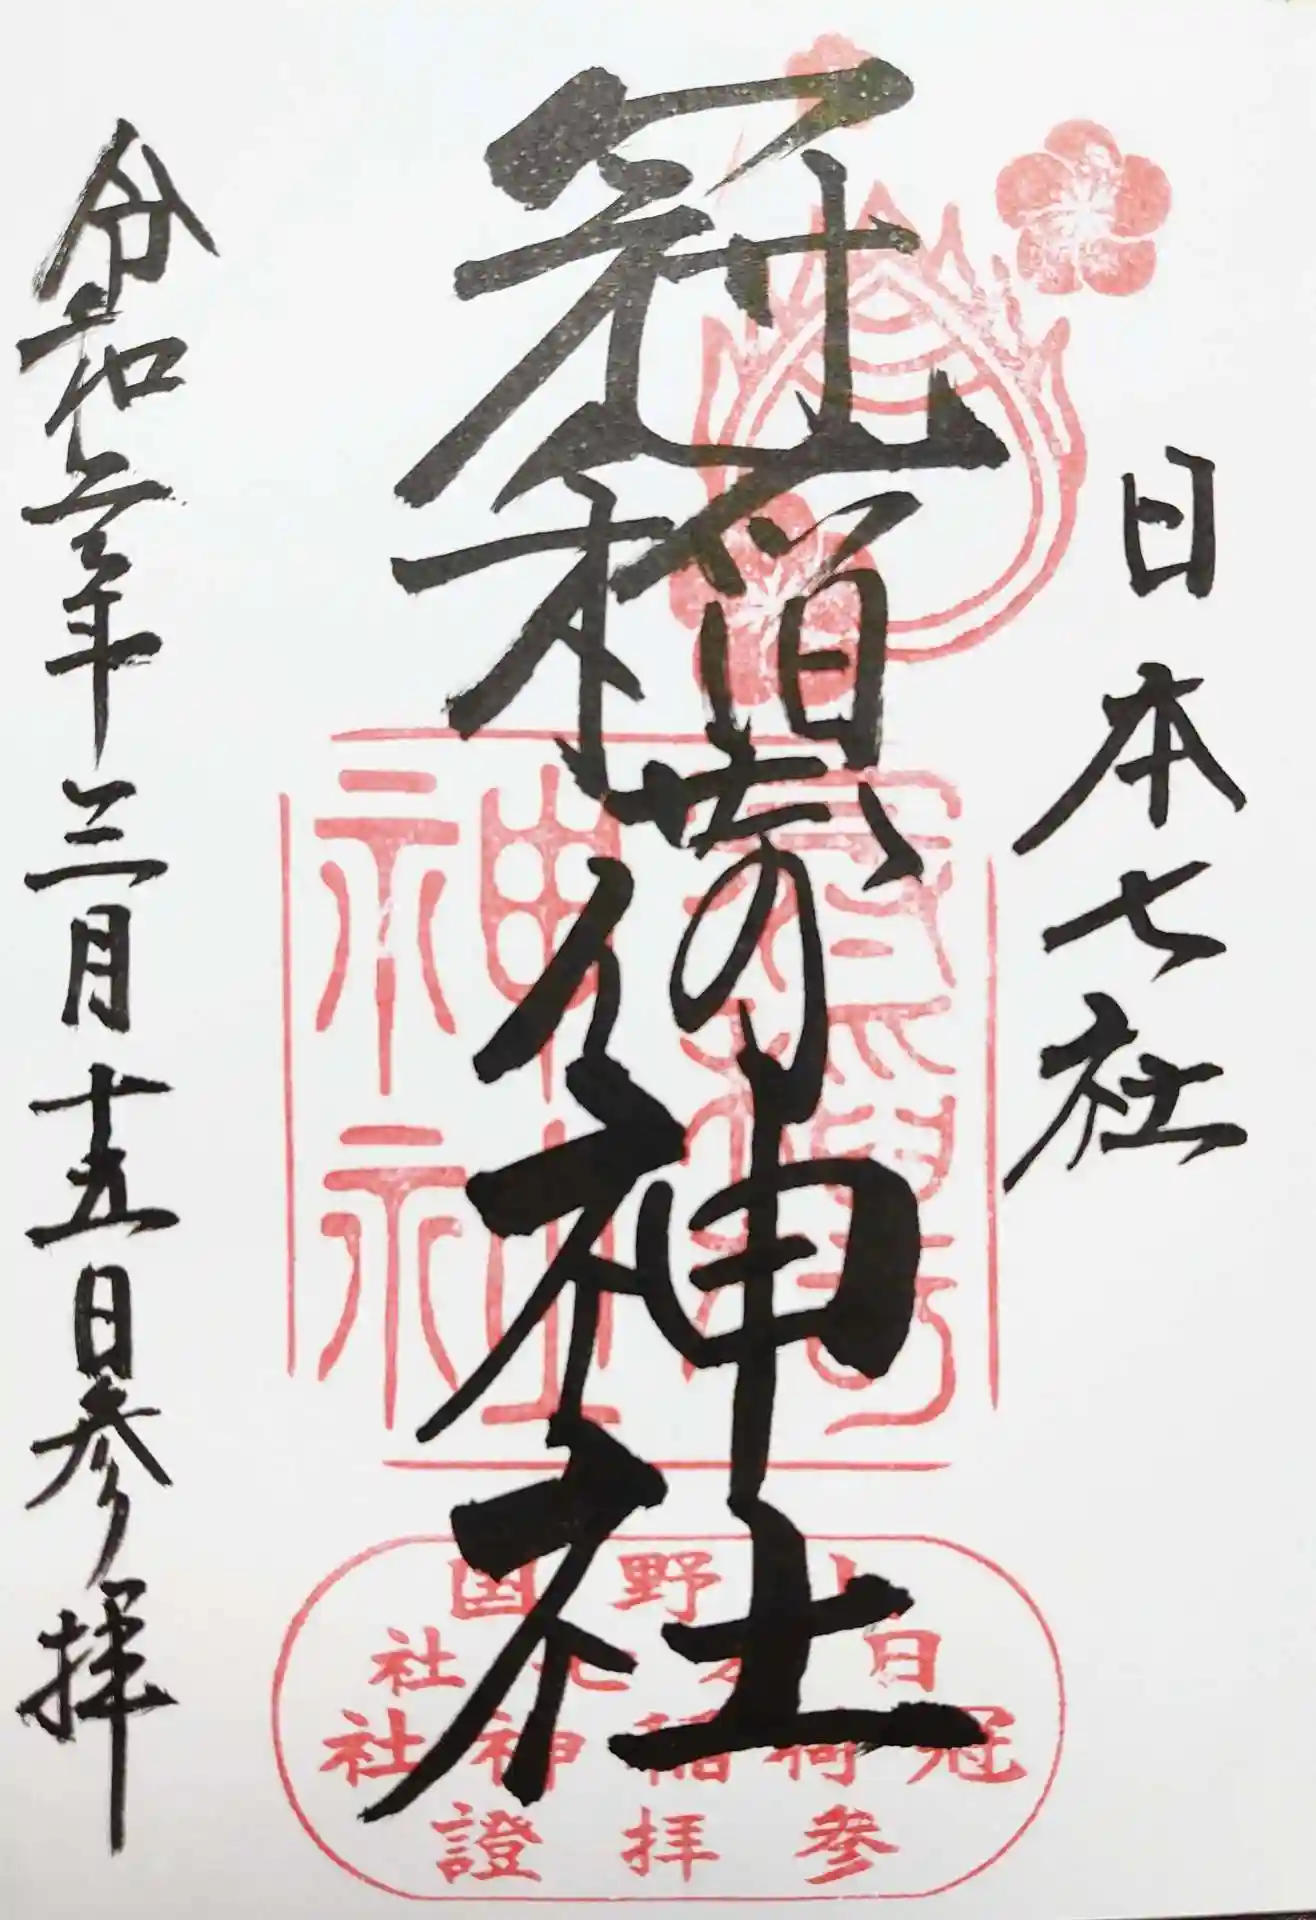 日本七社
冠稲荷神社
令和年三月十五日参拝
神社
野国
日本七社
冠荷稲神社
參拝證